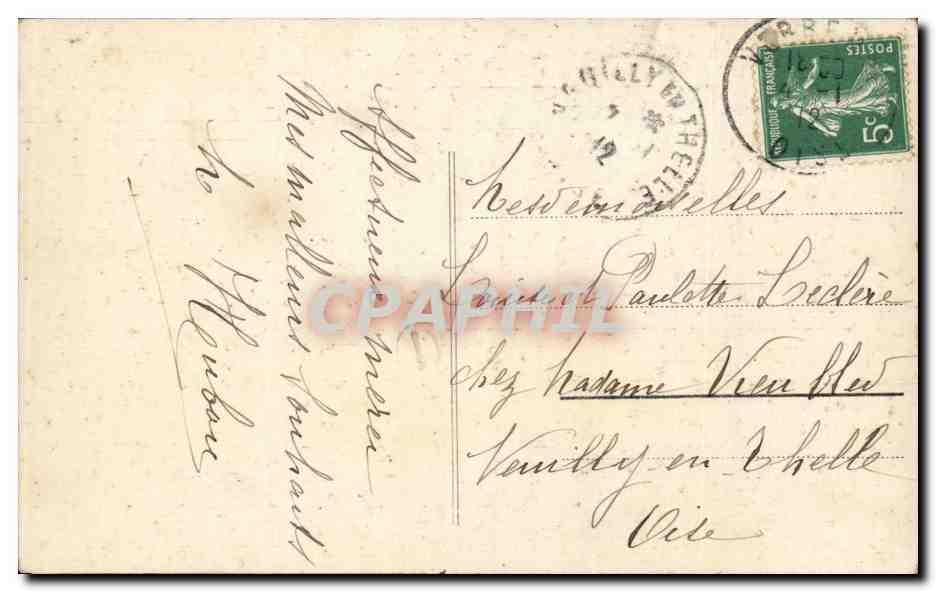 Affectueux merci
Mes meilleurs souhaits
M Hubou
NEUILLY EN THELLE
12
RÉPUBLIQUE FRANÇAISE
POSTES
5c
OISE
Mesdemoiselles
Louise et Paulette Leclère
chez Madame Vieubled
Neuilly en Thelle
Oise
CPAPHIL